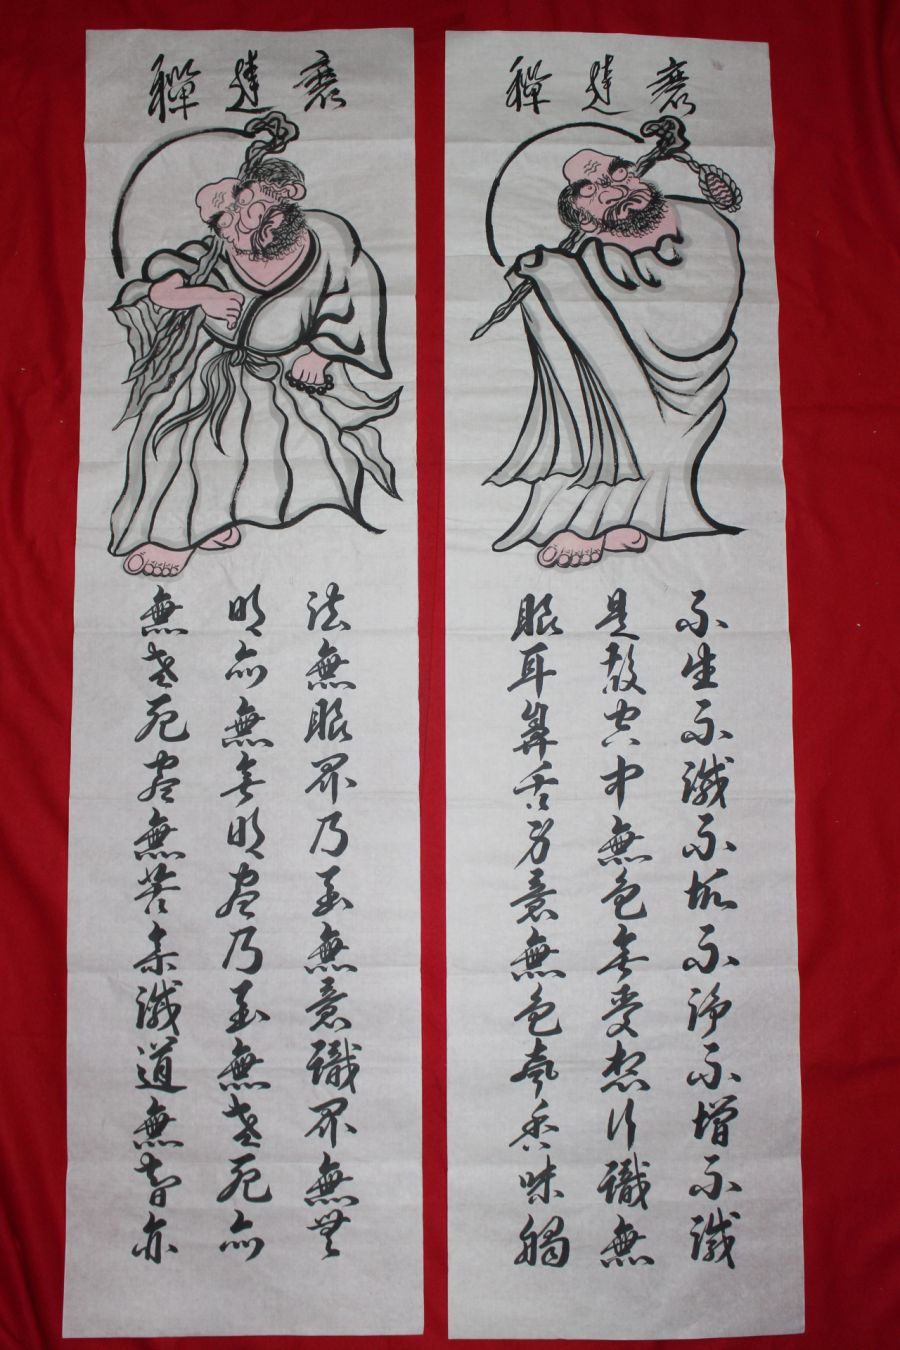 磨達禪
不生不滅不垢不淨不增不減
是故空中無色無受想行識無
眼耳鼻舌身意無色聲香味觸
磨達禪
法無眼界乃至無意識界無無
明亦無無明盡乃至無老死亦
無老死盡無苦集滅道無智亦